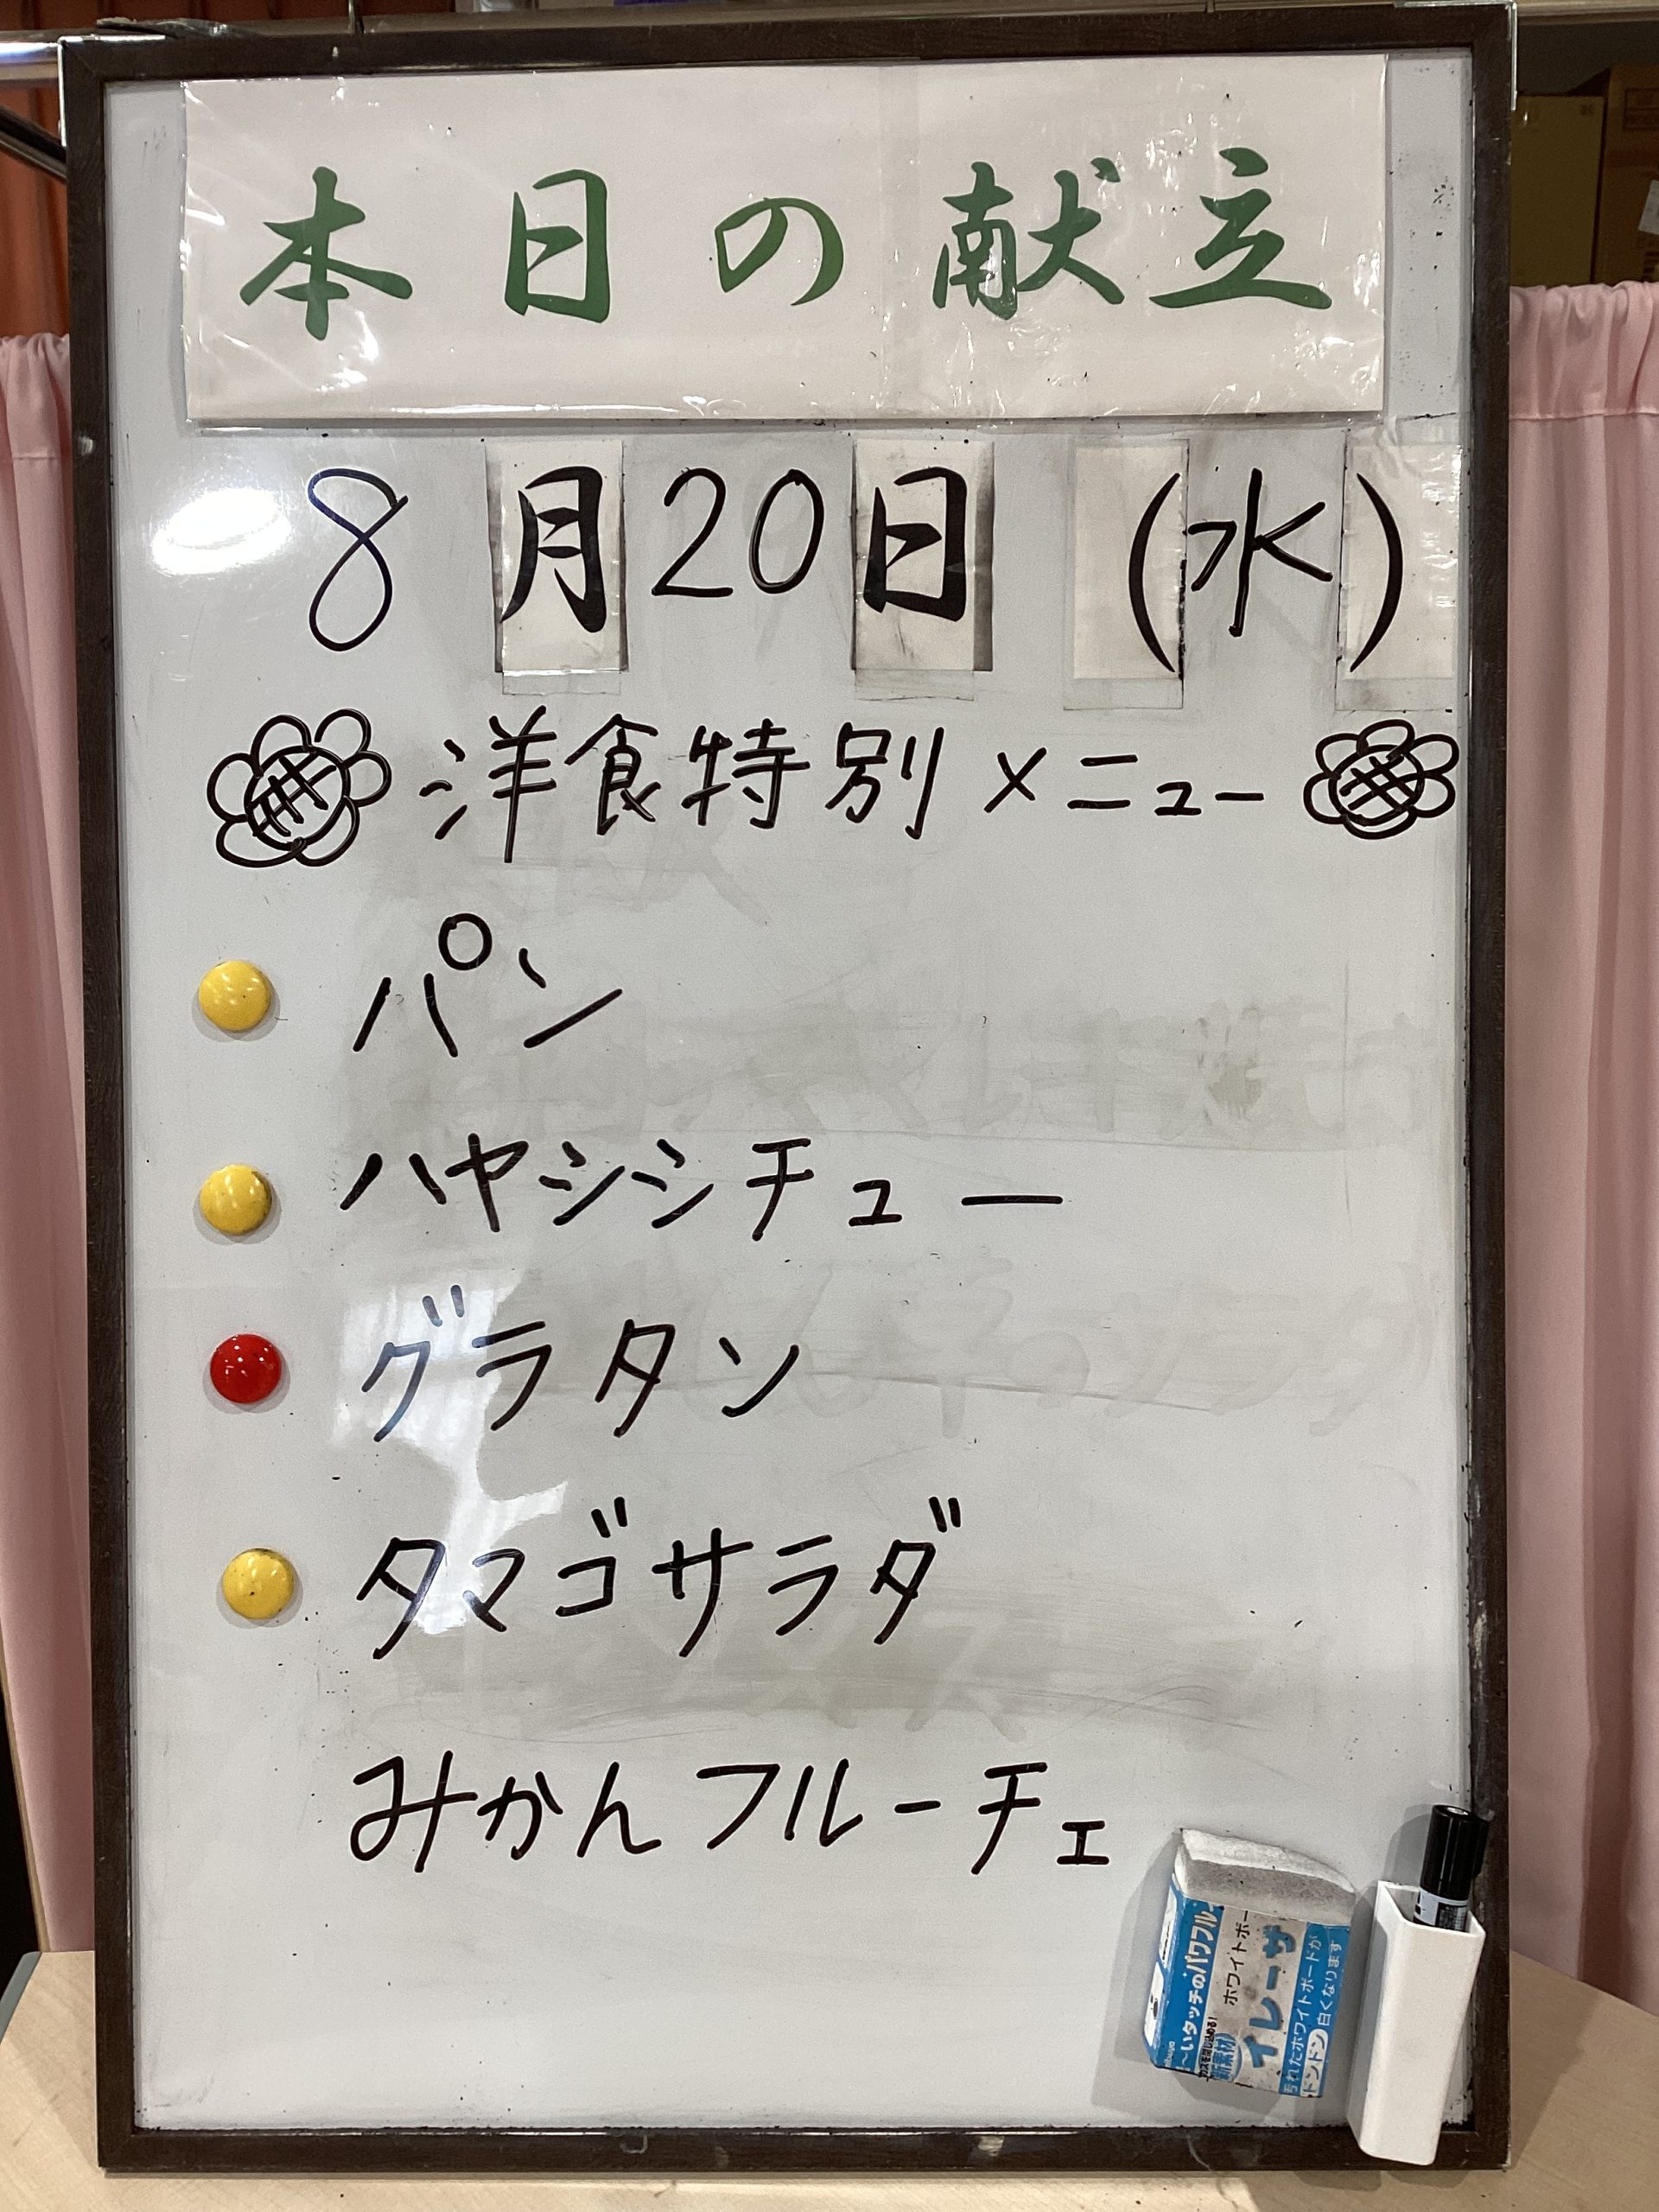 本日の献立
8月20日 (水)
洋食特別メニュー
パン
ハヤシシチュー
グラタン
タマゴサラダ
みかんフルーチェ
いタッチのパワフル
ホワイトボー
イレーザ
新素材
汚れたホワイトボードが
ドンドン白くなります